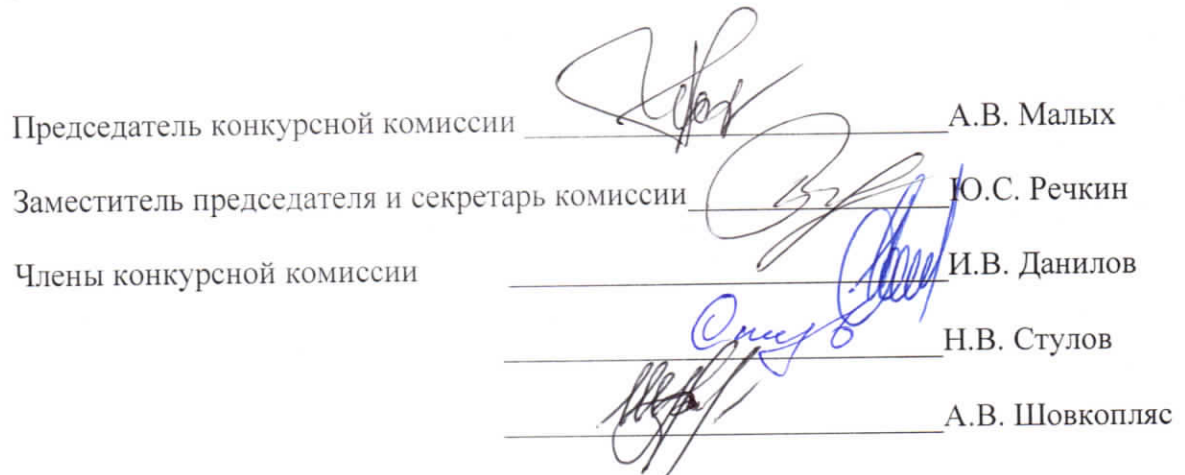 Председатель конкурсной комиссии А.В. Малых
Заместитель председателя и секретарь комиссии Ю.С. Речкин
Члены конкурсной комиссии И.В. Данилов
Н.В. Стулов
А.В. Шовкопляс